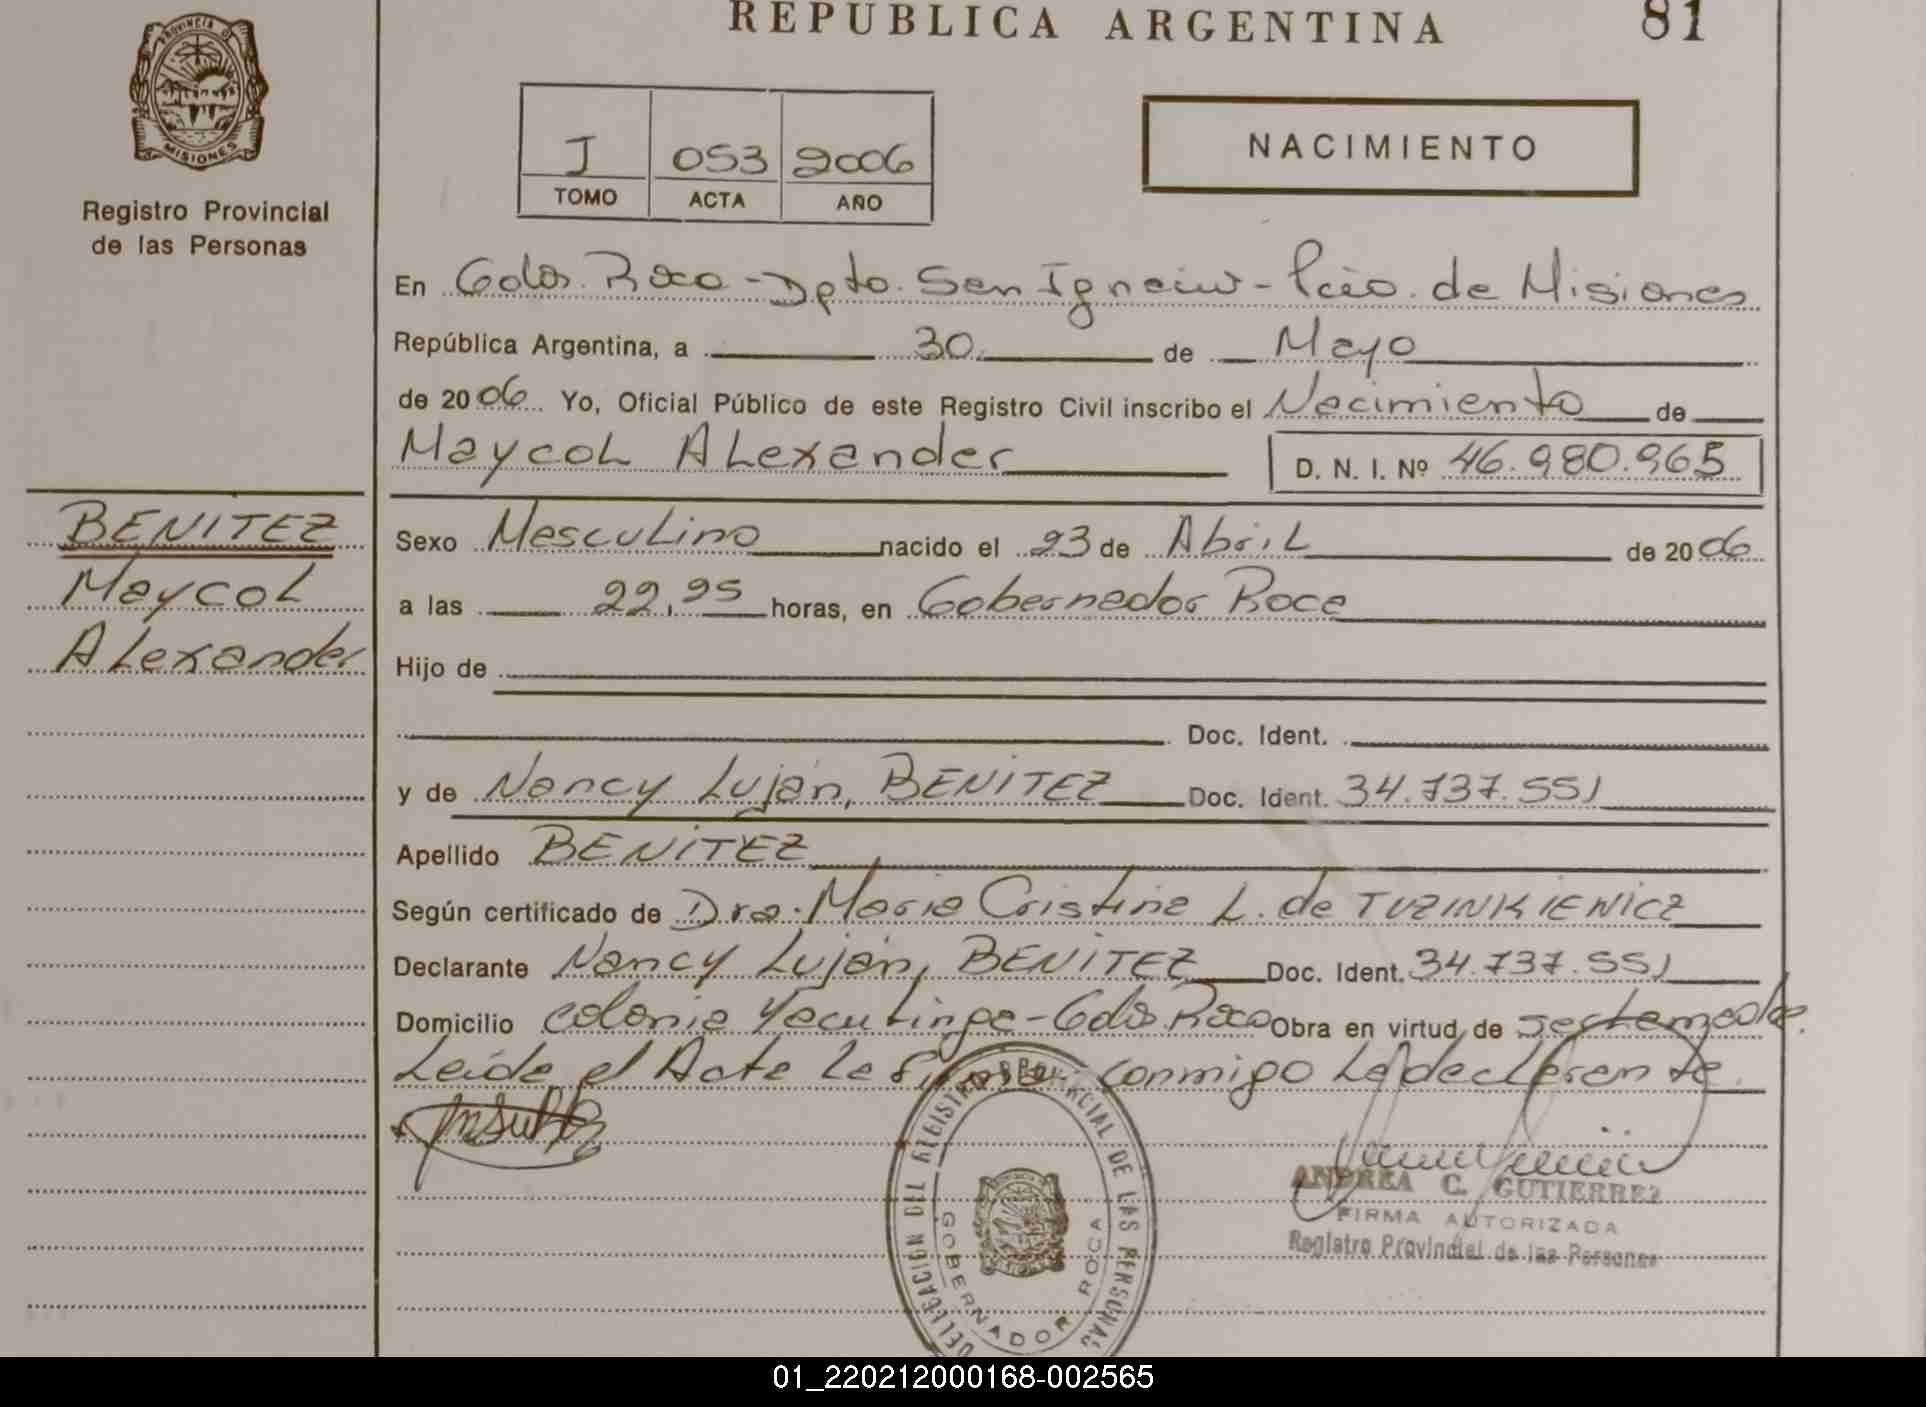 REPUBLICA ARGENTINA
81
PROVINCIA DE
MISIONES
Registro Provincial
de las Personas
I 053 2006
TOMO ACTA AÑO
NACIMIENTO
En Gdor. Roca - Dpto. San Ignacio - Pcia. de Misiones
República Argentina, a 30 de Mayo
de 2006 Yo, Oficial Público de este Registro Civil inscribo el Nacimiento de
Maycol Alexander D. N. I. Nº 46.980.965
BENITEZ
Maycol
Alexander
Sexo Masculino nacido el 23 de Abril de 2006
a las 22,25 horas, en Gobernador Roca
Hijo de
Doc. Ident.
y de Nancy Luján, BENITEZ Doc. Ident. 34.737.551
Apellido BENITEZ
Según certificado de Dra. Maria Cristina L. de TUZINKIEWICZ
Declarante Nancy Luján, BENITEZ Doc. Ident. 34.737.551
Domicilio Colonia Yacutinga - Gdor. Roca Obra en virtud de
Leída el Acta la firma conmigo la declarante
DELEGACION DEL REGISTRO PROVINCIAL DE LAS PERSONAS
GOBERNADOR ROCA
ANDREA C. GUTIERREZ
FIRMA AUTORIZADA
Registro Provincial de las Personas
01_220212000168-002565